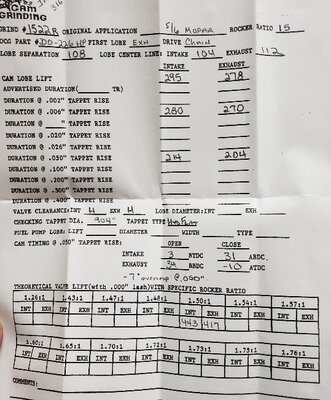 CAM
GRINDING
316
GRIND #1522R ORIGINAL APPLICATION S/6 MOPAR ROCKER RATIO 1.5
DCG PART #DD-226HP FIRST LOBE EXH DRIVE Chain
LOBE SEPARATION 108 LOBE CENTER LINE: INTAKE 104 EXHAUST 112
INTAKE EXHAUST
CAM LOBE LIFT 295 278
ADVERTISED DURATION( TR)
DURATION @ .002" TAPPET RISE
DURATION @ .006" TAPPET RISE 280 270
DURATION @ " TAPPET RISE
DURATION @ .010" TAPPET RISE
DURATION @ .020" TAPPET RISE
DURATION @ .016" TAPPET RISE
DURATION @ .050" TAPPET RISE 214 204
DURATION @ .200" TAPPET RISE
DURATION @ .300" TAPPET RISE
DURATION @ .400" TAPPET RISE
VALVE CLEARANCE: INT H EXH H LOBE DIAMETER: INT EXH
CHECKING TAPPET DIA. .904" TAPPET TYPE
FUEL PUMP LOBE: LIFT DIAMETER WIDTH TYPE
CAM TIMING @ .050" TAPPET RISE: OPEN CLOSE
INTAKE 3 BTDC 31 ABDC.
EXHAUST 34 BBDC -10 ATDC
-7° overlap @.050"
THEORETICAL VALVE LIFT(with .000" lash)WITH SPECIFIC ROCKER RATIO
1.26:1 1.43:1 1.47:1 1.48:1 1.50:1 1.54:1 1.57:1
INT EXH INT EXH INT EXH INT EXH INT EXH INT EXH INT EXH
443 417
1.60:1 1.65:1 1.70:1 1.72:1 1.73:1 1.75:1 1.76:1
INT EXH INT EXH INT EXH INT EXH INT EXH INT EXH INT EXH
COMMENTS: